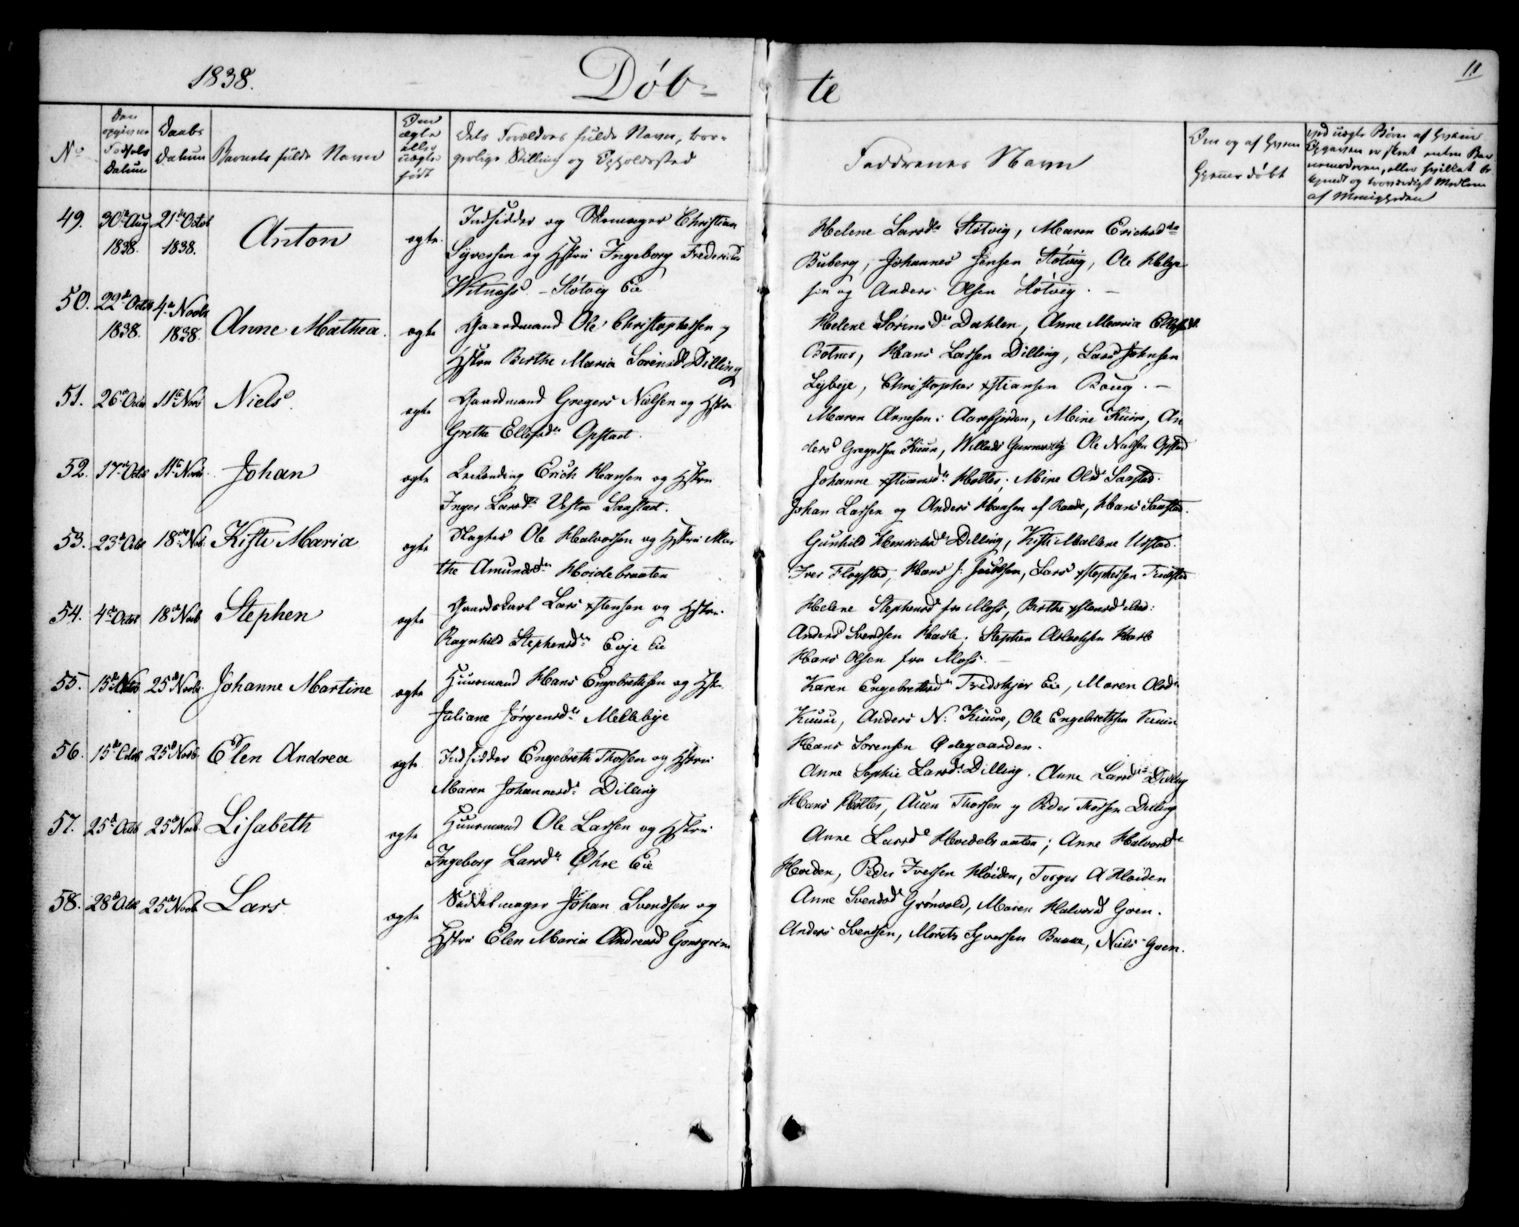 1838.
Døb-
te
11
No
Den opgivne Fødsels Datum
Daabs Datum
Barnets fulde Navn
Om ægte eller uægte født
Forældres fulde Navn, bor-
gerlige Stilling og Opholdssted
Faddrenes Navn
Om og af hvem
hjemmedøbt
ved uægte Børn af hvem
Opgaven er skeet enten Bar
nemoderen, eller hvilket be
kjendt og troværdigt Medlem
af Menigheden
49. 30te Aug 1838. 21de Octob 1838. Anton ægte
Indsidder og Skomager Christian
Syversen og Hstru Ingeborg Frederics
Støtvig Eie
Helene Larsdtr Støtvig, Maren Erichsdtr
Buberg, Johannes Jensen Støtvig, Ole Helge
sen og Anders Olsen Støtvig. —
50. 22de Octob 1838. 4de Novb 1838. Anne Mathea. ægte
Gaardmand Ole Christophersen og
Hstru Berthe Maria Sørensdr Dilling
Helene Sørensdr Dahlen, Anne Maria
Botner, Hans Larsen Dilling, Lars Johnsen
Lybye, Christopher xstiansen Boug. —
51. 26de Octb 11te Novb Niels. ægte
Gaardmand Gregers Nielsen og Hstru
Grethe Ellefsdr Opstad.
Maren Arnesen Aarefjorden, Mine Kuure, An
ders Gregersen Kuure, Ole Nielsen Opstad
52. 17de Octb 11te Novb Johan ægte
Erich Hansen og Hstru
Inger Larsdr Vestre Saastad.
Johanne xstiansdr Holter, Mine Olsd Saastad.
Johan Larsen og Anders Hansen af Raade, Hans Saastad.
53. 23de Octb 18de Nov. Kisti Maria ægte
Slagter Ole Halvorsen og Hstru Mar
the Amundsdr Hoidebraaten
Gunhild Henrichsd Dilling, Kisti Mallene
Iver Flogstad, Hans J. Lars
54. 4de Octob 18de Novb Stephen ægte
Gaardskarl Lars xstensen og Hstru
Ragnhild Stephensdr Evje Eie
Helene Stephensd fra Moss, Berthe
Anders Svendsen Hasle, Stephen
Hans Olsen fra Moss. —
55. 15de 25de Novb. Johanne Martine ægte
Huusmand Hans Engebretsen og Hstr.
Juliane Jørgensdr Mellebye
Karen Engebretsd Fredskjær Eie, Maren Olsdr
Kuure, Anders N. Kuure, Ole Engebretsen Kuure
Hans Sørensen Ødegaarden.
56. 15de Octb 25de Novb Elen Andrea ægte
Indsidder Engebreth Thorsen og Hstru
Maren Johannesdr Dilling
Anne Sophie Larsdr Dilling. Anne Larsdr Dilling
Hans Holter, Auen Thorsen og Peder Thorsen Dilling
57. 25de Octb 25de Novb Lisabeth ægte
Huusmand Ole Larsen og Hstru
Ingeborg Larsdr Øhre Eie
Anne Larsd Hoidebraaten, Anne Halvorsdr
Hoiden, Peder Iversen Høiden, Torger A Høiden
58. 28de Octb 25de Novb Lars ægte
Saddelmager Johan Svendsen og
Hstru Elen Maria Andreasd
Anne Svendsd Grønvold, Maren Halvorsd Goen.
Anders Svendsen, Morits Syversen Niels Goen.